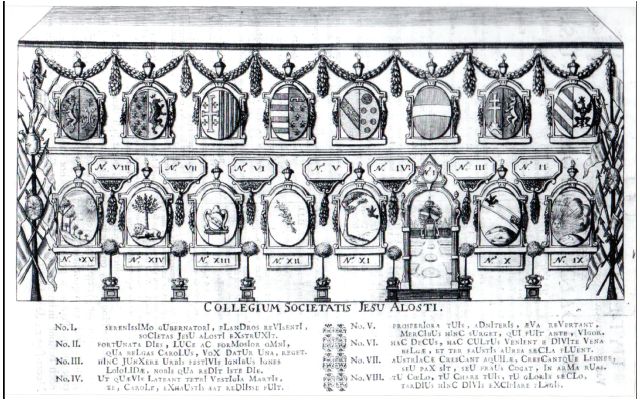 Nº VIII Nº VII Nº VI Nº V Nº IV Nº I Nº III Nº II
Nº XV Nº XIV Nº XIII Nº XII Nº XI Nº X Nº IX
COLLEGIUM SOCIETATIS JESU ALOSTI.
No. I. SERENISSIMO GUBERNATORI, FLANDROS REVISENTI,
SOCIETAS JESU ALOSTI EXSTRUXIT.
No. II. FORTUNATA DIES, LUCE AC FORMOSIOR OMNI,
QUA BELGAS CAROLUS, VOX DATUR UNA, REGET.
No. III. HINC JUNXERE URBIS FESTIVIS IGNIBUS IGNES
LOIOLIDÆ, NOBIS QUA REDIT ISTE DIE.
No. IV. UT QUÆVIS LATEANT TETRI VESTIGIA MARTIS,
TE, CAROLE, EXHAUSTIS AST REDIISSE FUIT.
No. V. PROSPERIORA TUIS, ADNITERIS, ÆVA REVERTANT,
MERCIBUS HINC SURGET, QUI FUIT ANTE, VIGOR.
No. VI. HAC DECUS, HAC CULTUS VENIENT E DIVITE VENA
BELGIÆ, ET TER FAUSTIS AUREA SÆCLA FLUENT.
No. VII. AUSTRIACÆ CRESCANT AQUILÆ, CRESCANTQUE LEONES;
SEU PAX SIT, SEU FRAUS COGAT, IN ARMA RUAS.
No. VIII. TU CŒLO, TU CHARE TUIS, TU GLORIA SÆCLO,
TARDIUS HINC DIVIS